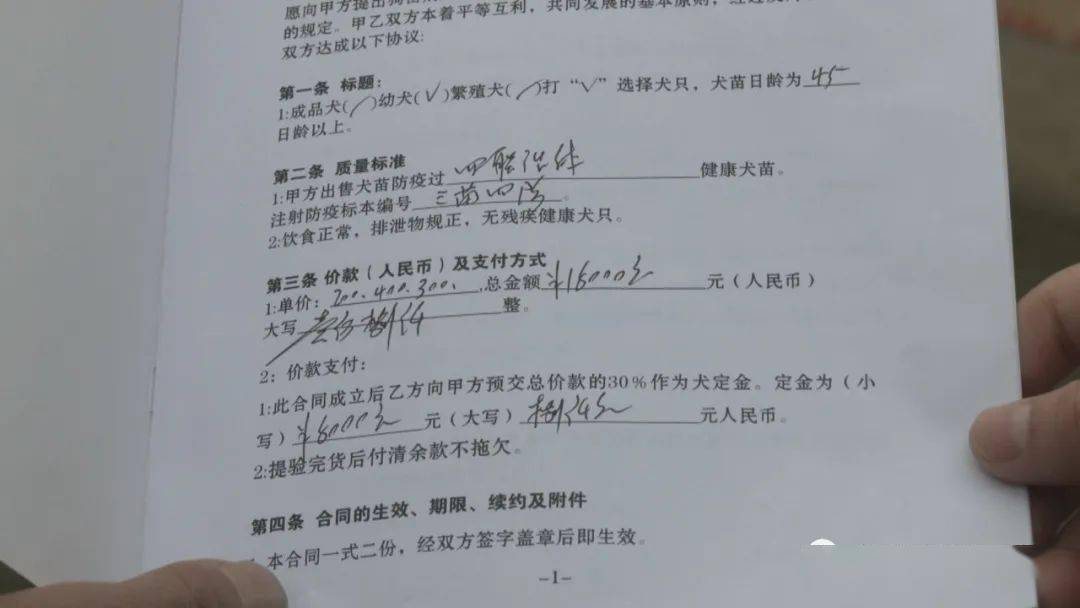 愿向甲方提出
的规定。甲乙双方本着平等互利，共同发展的基本原则，
双方达成以下协议:
第一条 标题：
1:成品犬( )幼犬(√)繁殖犬( )打“√”选择犬只，犬苗日龄为 45
日龄以上。
第二条 质量标准
1:甲方出售犬苗防疫过 健康犬苗。
注射防疫标本编号 。
2:饮食正常，排泄物规正，无残疾健康犬只。
第三条 价款（人民币）及支付方式
1:单价： 200.400.300. ,总金额 ¥18000元 元（人民币）
大写 壹万捌仟 整。
2：价款支付：
1:此合同成立后乙方向甲方预交总价款的30%作为犬定金。定金为（小
写）¥8000元 元（大写） 捌仟元 元人民币。
2:提验完货后付清余款不拖欠。
第四条 合同的生效、期限、续约及附件
本合同一式二份，经双方签字盖章后即生效。
-1-